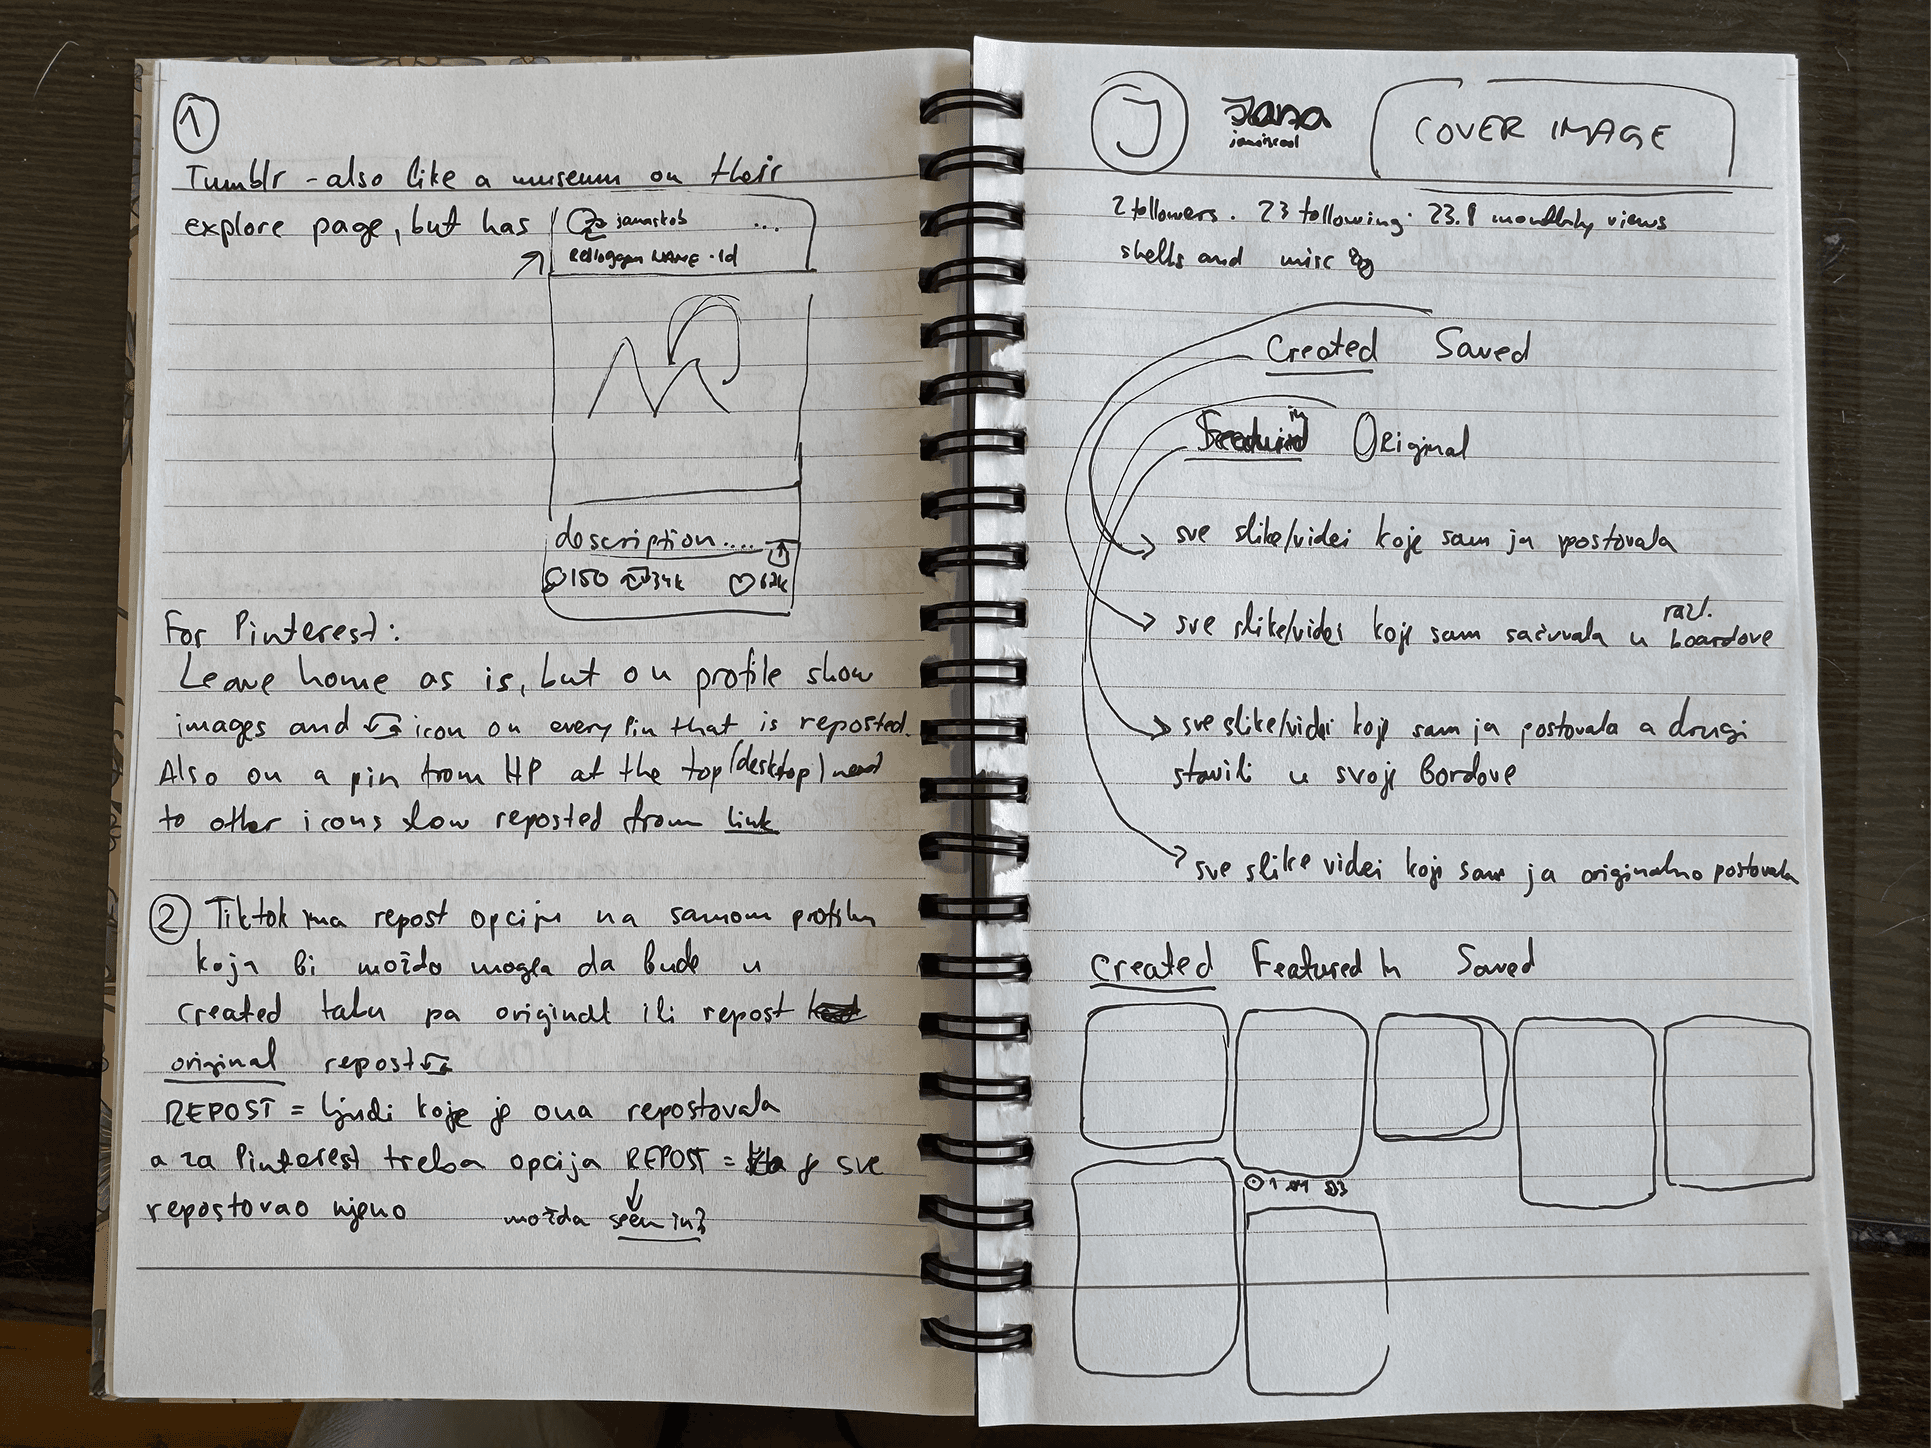 1
Tumblr - also like a museum on their
explore page, but has
janaskob ...
NAME · 1d
description....
150 34k 62k
For Pinterest:
Leave home as is, but on profile show
images and icon on every Pin that is reposted.
Also on a pin from HP at the top (desktop) next
to other icons show reposted from link
2 Tiktok ima repost opciju na samom profilu
koja bi možda mogla da bude u
created tabu pa original ili repost
original repost
REPOST = ljudi koje je ona repostovala
a za Pinterest treba opcija REPOST = je sve
repostovao njeno
možda seen in?
J Jana COVER IMAGE
2 followers. 23 following. 23.1 monthly views
shells and misc
Created Saved
in Original
sve slike/videi koje sam ja postovala
razl.
sve slike/videi koje sam sačuvala u boardove
sve slike/videi koje sam ja postovala a drugi
stavili u svoje bordove
sve slike videi koje sam ja originalno postovala
Created Featured In Saved